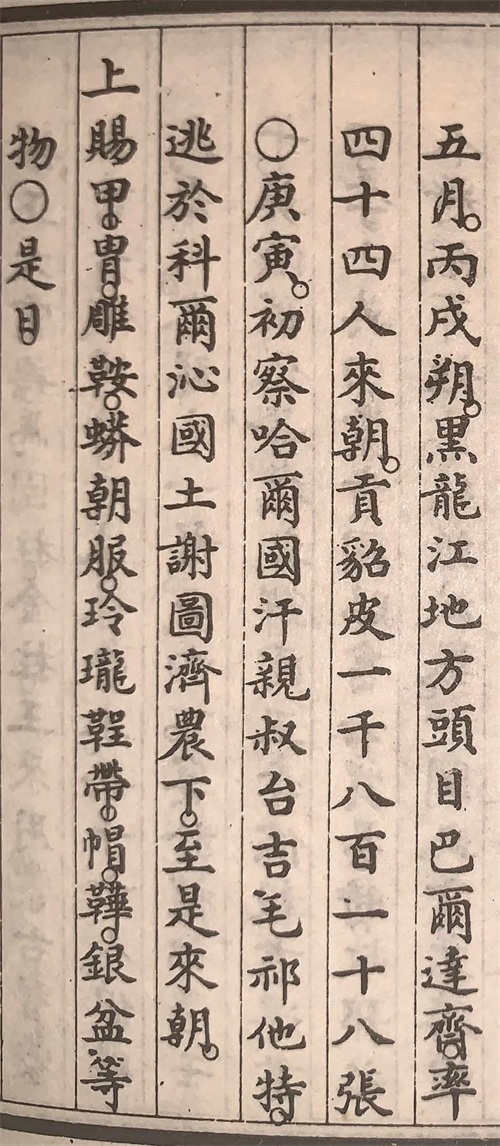 五月。丙戌朔。黑龍江地方頭目巴爾達齊。率
四十四人來朝。貢貂皮一千八百一十八張
○庚寅。初察哈爾國汗親叔台吉毛祁他特。
逃於科爾沁國土謝圖濟農下。至是來朝。
上賜甲。冑。雕鞍。蟒朝服。玲瓏鞓帶。帽。鞾。銀盆等
物○是日。